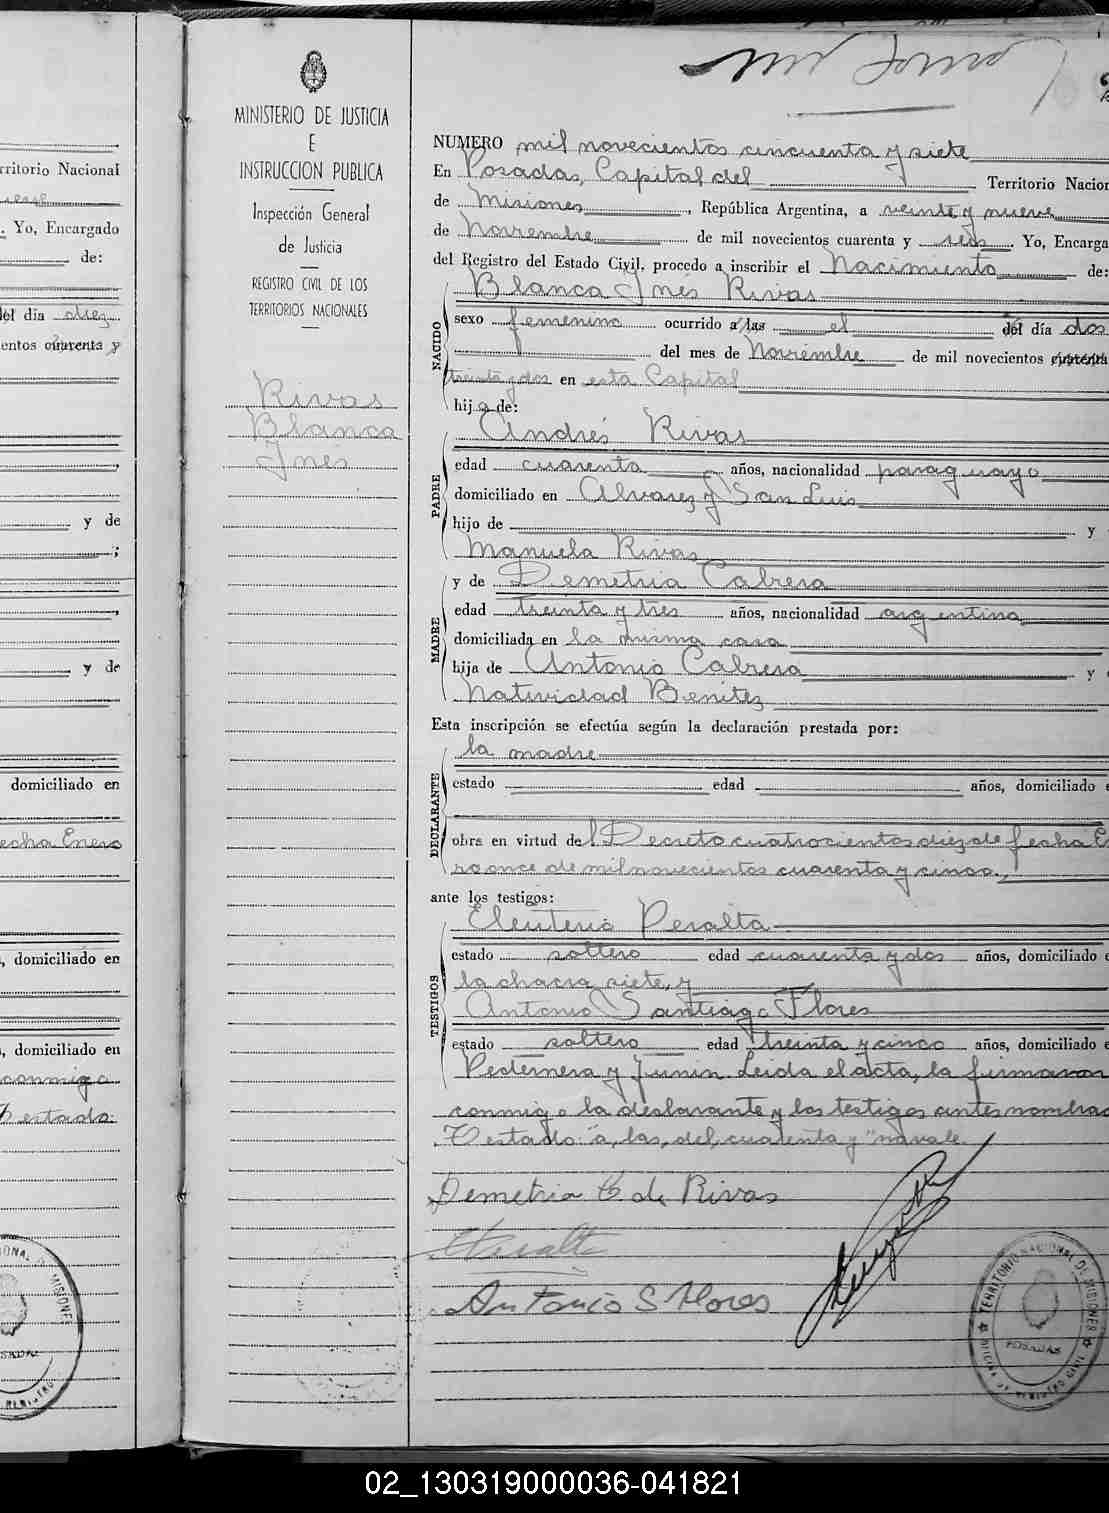 MINISTERIO DE JUSTICIA
E
INSTRUCCION PUBLICA
Inspección General
de Justicia
REGISTRO CIVIL DE LOS
TERRITORIOS NACIONALES
Rivas
Blanca
Inés
NUMERO mil novecientos cincuenta y siete
En Posadas, Capital del Territorio Nacion
de Misiones, República Argentina, a veinte y nueve
de Noviembre de mil novecientos cuarenta y seis. Yo, Encarga
del Registro del Estado Civil, procedo a inscribir el Nacimiento de:
NACIDO
Blanca Inés Rivas
sexo femenino ocurrido a las el del día dos
del mes de Noviembre de mil novecientos cuarenta
treinta y dos en esta Capital
hija de:
PADRE
Andrés Rivas
edad cuarenta años, nacionalidad paraguayo
domiciliado en Alvarez y San Luis
hijo de y
Manuela Rivas
MADRE
y de Demetria Cabrera
edad treinta y tres años, nacionalidad argentina
domiciliada en la misma casa
hija de Antonio Cabrera y
Natividad Benitez
Esta inscripción se efectúa según la declaración prestada por:
DECLARANTE
la madre
estado edad años, domiciliado e
obra en virtud del Decreto cuatrocientos diez de fecha E
ro once de mil novecientos cuarenta y cinco.,
ante los testigos:
TESTIGOS
Eleuterio Peralta
estado soltero edad cuarenta y dos años, domiciliado e
la chacra siete, y
Antonio Santiago Flores
estado soltero edad treinta y cinco años, domiciliado e
Pedernera y Junin Leida el acta, la firmaron
conmigo la declarante y los testigos antes nombra
Testado: "a, las, del, cuarenta y" no vale.
Demetria C de Rivas
EPeralta
Antonio S Flores
TERRITORIO NACIONAL DE MISIONES
POSADAS
OFICINA DE REGISTRO CIVIL
rritorio Nacional
. Yo, Encargado
de:
del día diez
entos cuarenta y
y de
;
y de
domiciliado en
echa Enero
, domiciliado en
, domiciliado en
conmigo
Testado:
02_130319000036-041821